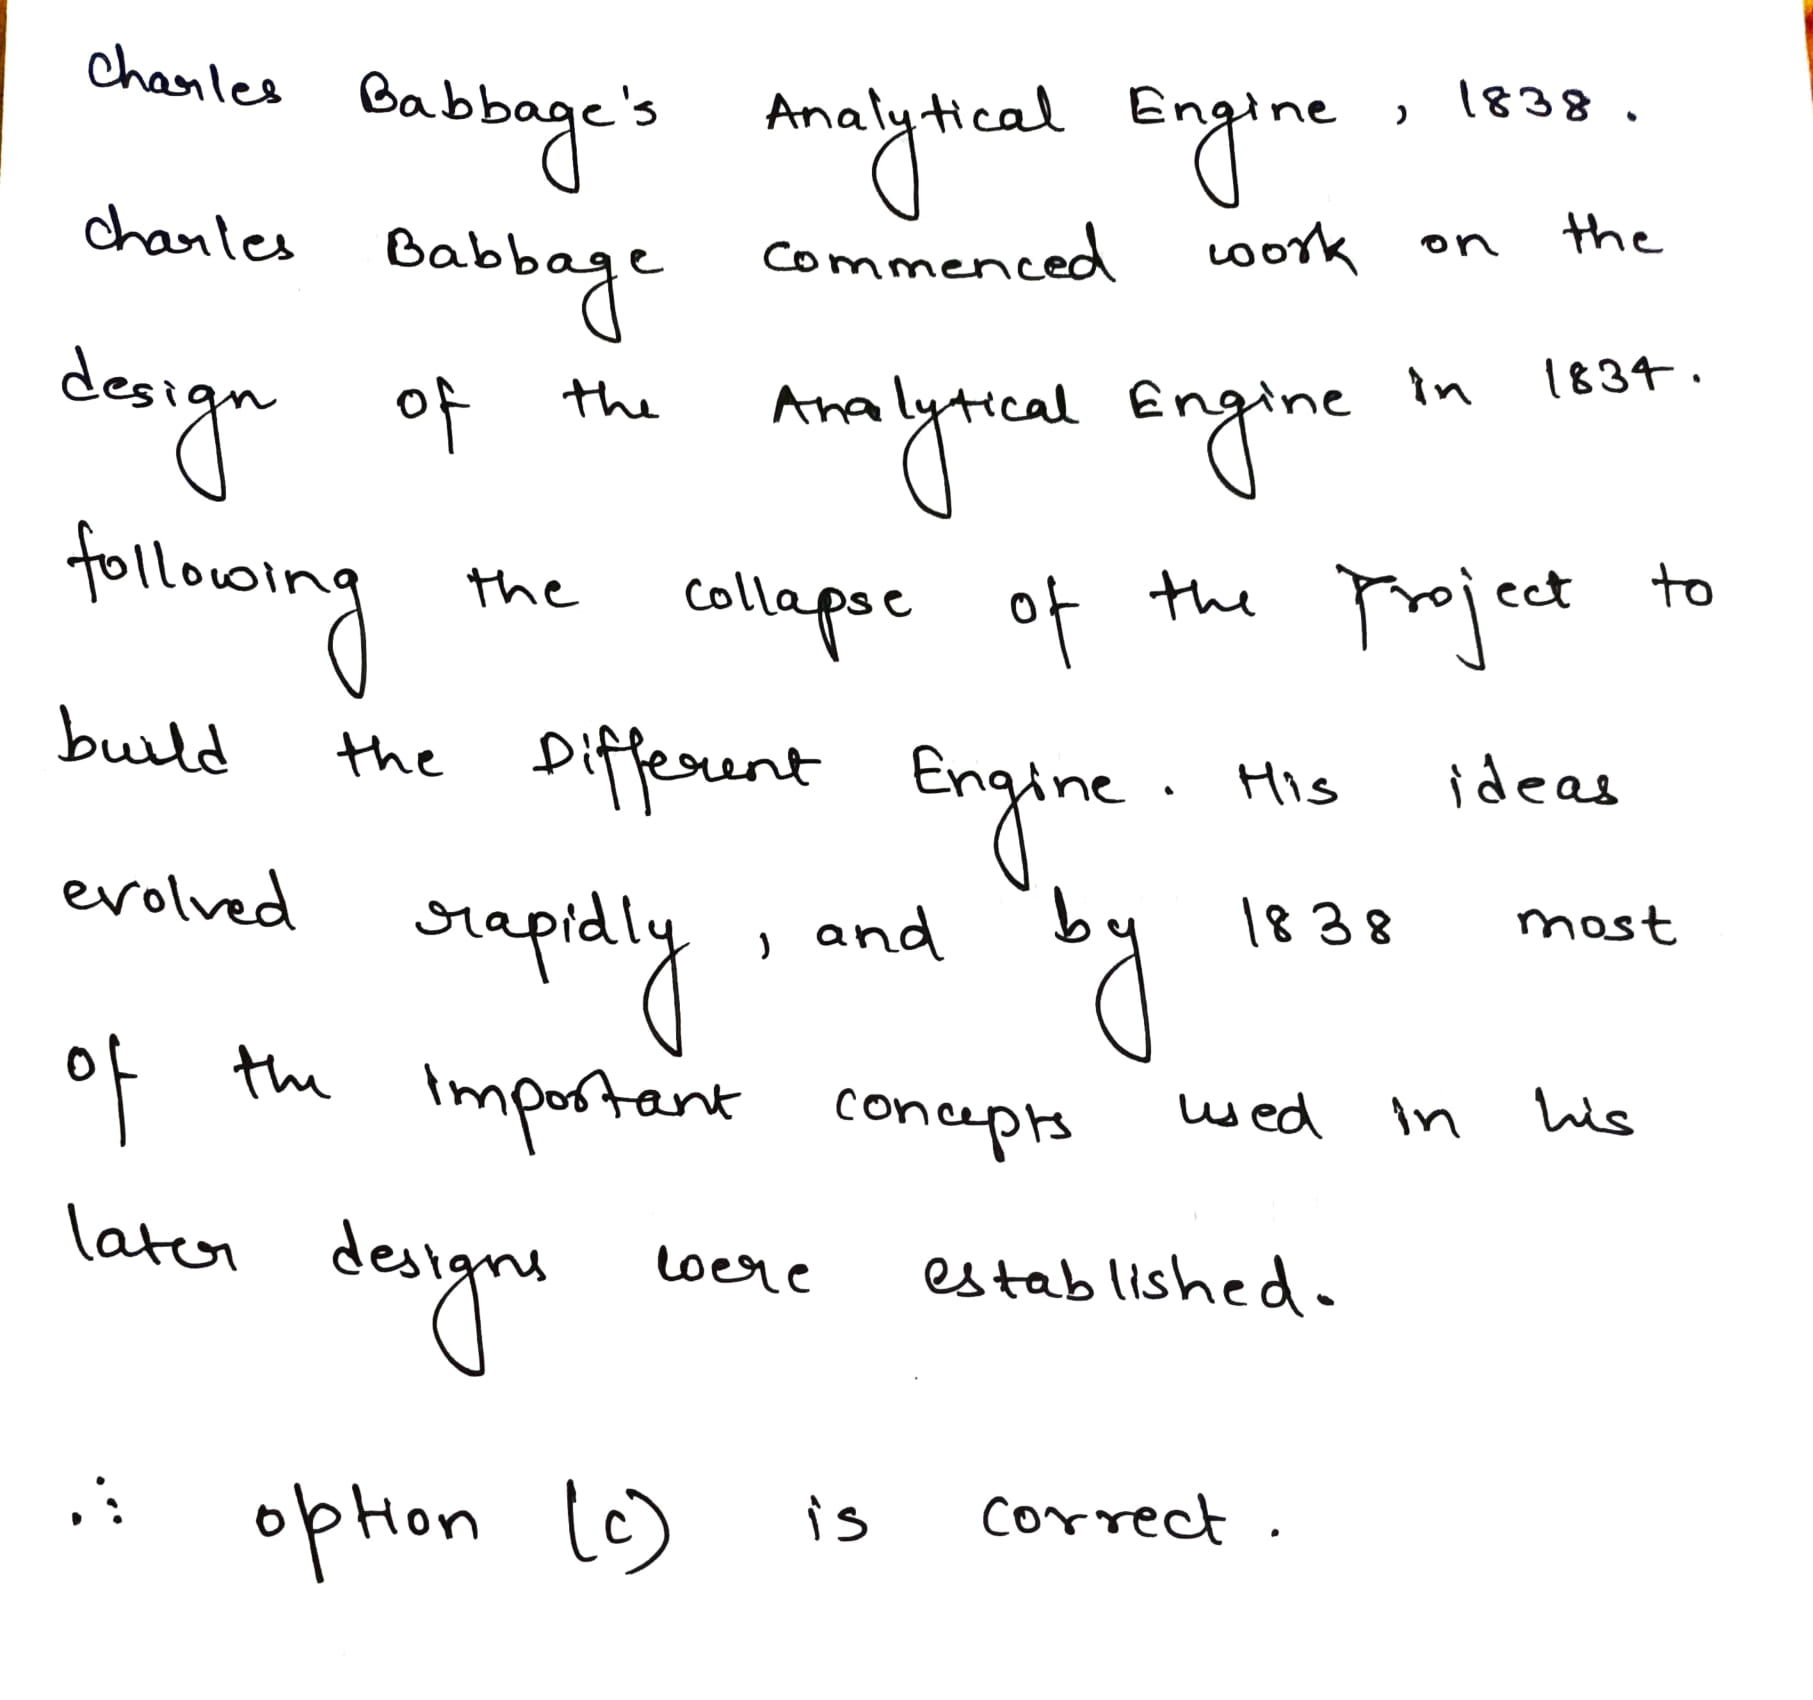 Charles Babbage's Analytical Engine, 1838.
Charles Babbage commenced work on the
design of the Analytical Engine in 1834.
following the collapse of the Project to
build the Different Engine. His ideas
evolved rapidly, and by 1838 most
of the important concepts used in his
later designs were established.
∴ option (c) is correct.